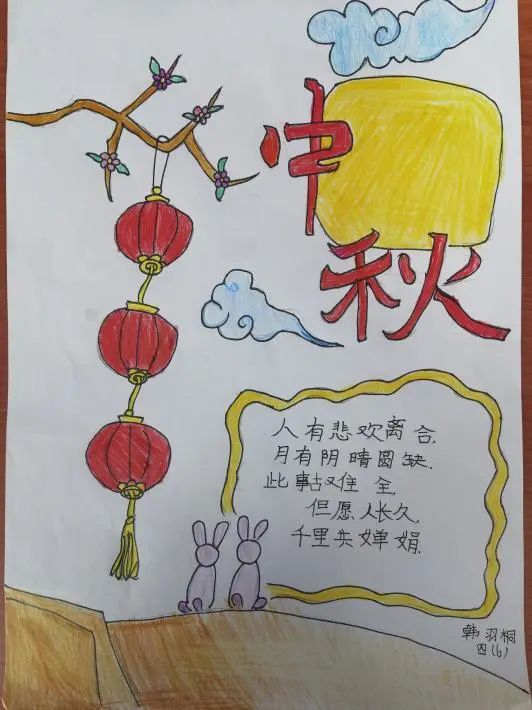 中秋
人有悲欢离合,
月有阴晴圆缺.
此事古难全,
但愿人长久,
千里共婵娟.
韩羽桐
四(6)